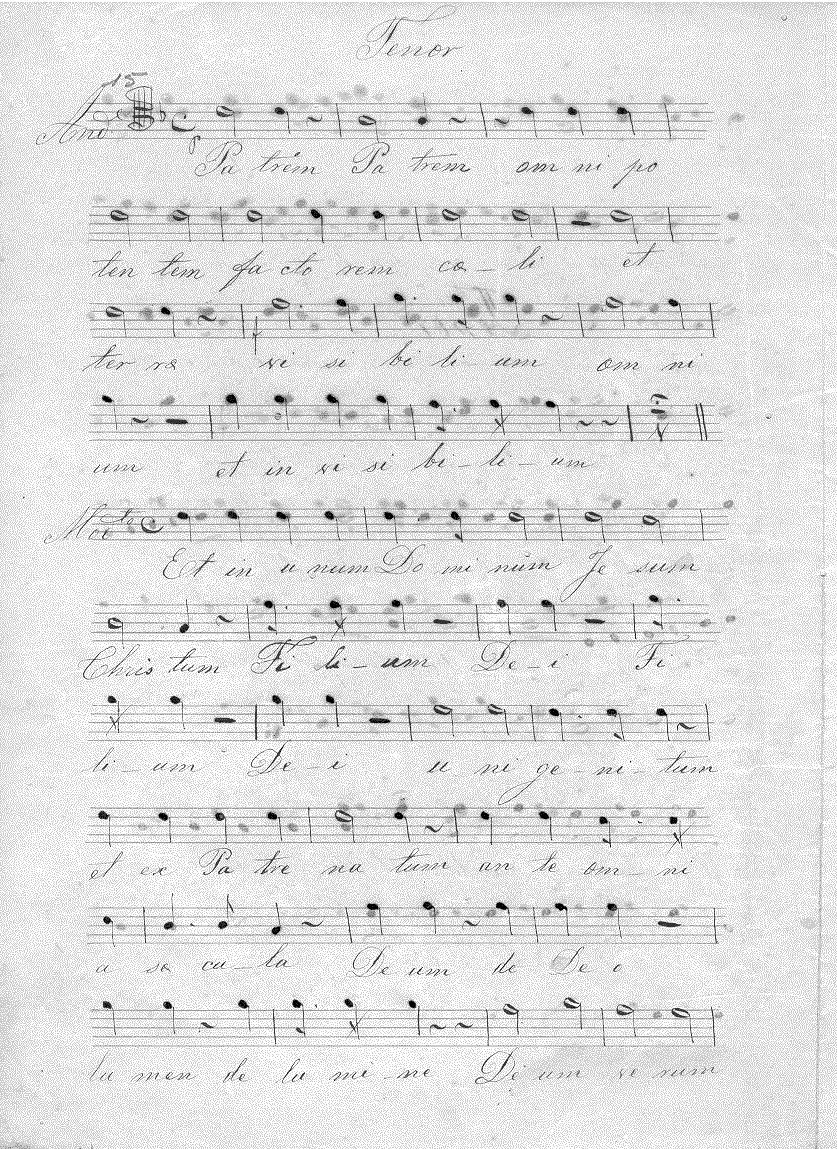 Tenor
15
And
Pa trem Pa trem om ni po
ten tem fa cto rem cœ _ li et
ter ræ vi si bi li _ um om ni
um et in vi si bi _ li _ um
Modto
Et in u num Do mi num Je sum
Chris tum Fi li _ um De _ i Fi
li _ um De _ i u _ ni ge _ ni _ tum
et ex Pa tre na tum an te om _ ni
a sæ cu _ la De um de De o
lu men de lu mi _ ne De um ve rum